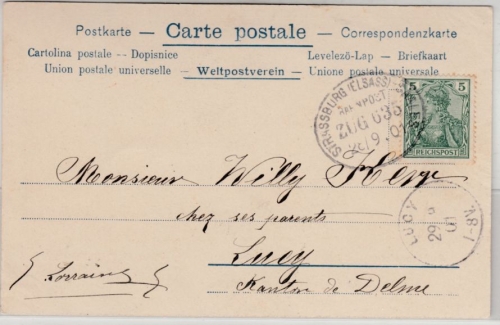 Postkarte — Carte postale — Correspondenzkarte
Cartolina postale -- Dopisnice Levelező-Lap — Briefkaart
Union postale universelle — Weltpostverein — Unione postale universale
STRASSBURG (ELSASS)
BAHNPOST
ZUG 635
5 5
REICHSPOST
LUCY
29
Monsieur Willy
chez ses parents
Lucy
Kanton de Delme
Lorraine